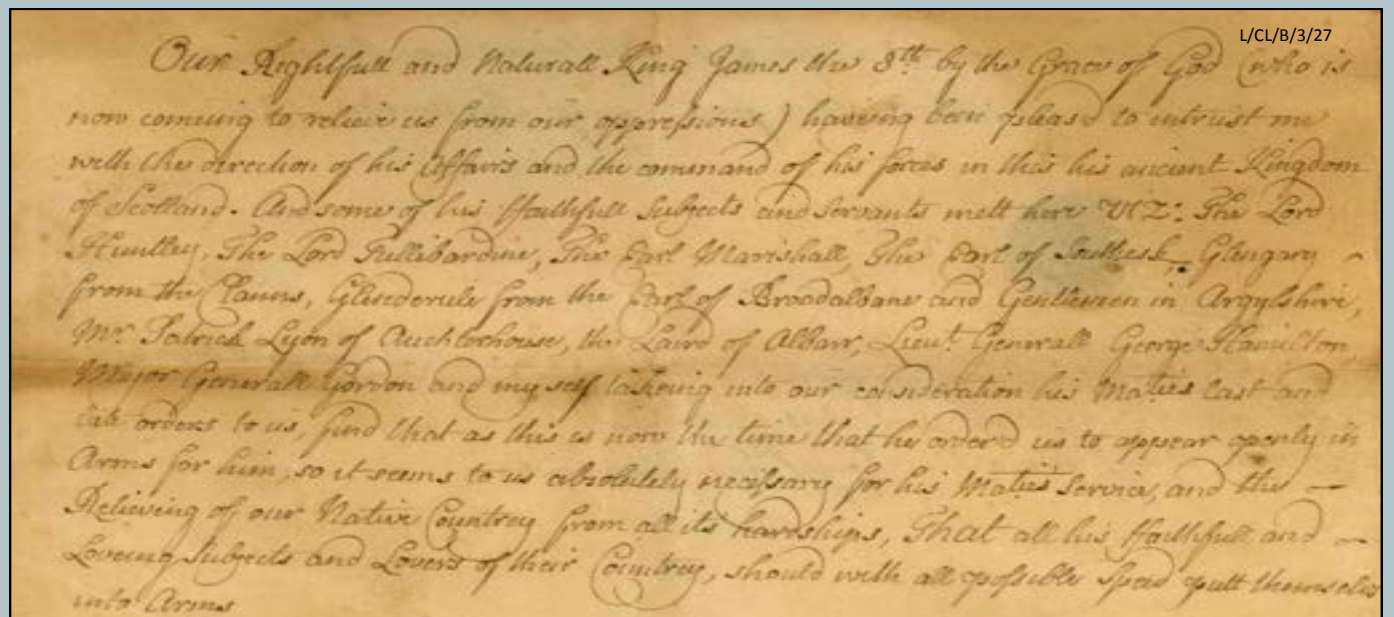 L/CL/B/3/27
Our Rightfull and Naturall King James the 8th by the Grace of God (who is
now comeing to relieve us from our oppressions) haveing been pleasd to intrust me
with the direction of his Affairs and the command of his forces in this his ancient Kingdom
of Scotland. And some of his ffaithfull Subjects and Servants mett here VIZ: The Lord
Huntley, The Lord Tullibardine, The Earl Marrishall, The Earl of Southesk, Glengary
from the Clanns, Glenderule from the Earl of Broadalbane and Gentlemen in Argylshire,
Mr. Patrick Lyon of Auchterhouse, the Laird of Albarr, Lieut. Generall George Hamilton,
Major Generall Gordon and my self takeing into our consideration his Maties last and
late orders to us, find that as this is now the time that he order'd us to appear openly in
Arms for him, so it seems to us absolutely necessary for his Maties Service, and the —
Relieving of our Native Countrey from all its hardships, That all his ffaithfull and —
Loveing Subjects and Lovers of their Countrey, should with all possible Speed putt themselves
into Arms